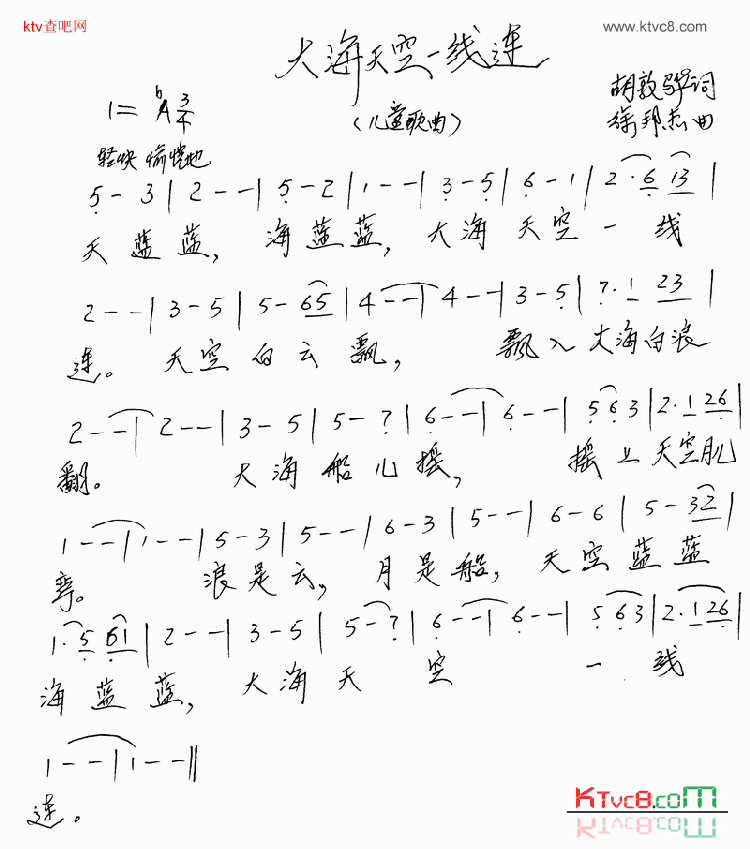 ktv查吧网
www.ktvc8.com
大海天空一线连
1=ᵇA 3/4
(儿童歌曲)
胡敦骅词
徐邦杰曲
轻快 愉悦地
5 - 3 | 2 - - | 5 - 2 | 1 - - | 3 - 5 | 6 - 1 | 2 · 6 13 |
天 蓝 蓝, 海 蓝 蓝, 大 海 天 空 一 线
2 - - | 3 - 5 | 5 - 65 | 4 - - | 4 - - | 3 - 5 | 7 · 1 23 |
连。 天 空 白 云 飘, 飘 入 大 海 白 浪
2 - - | 2 - - | 3 - 5 | 5 - 7 | 6 - - | 6 - - | 5 6 3 | 2 · 1 26 |
翻。 大 海 船 儿 摇, 摇 上 天 空 月儿
1 - - | 1 - - | 5 - 3 | 5 - - | 6 - 3 | 5 - - | 6 - 6 | 5 - 32 |
弯。 浪 是 云, 月 是 船, 天 空 蓝 蓝
1 · 5 61 | 2 - - | 3 - 5 | 5 - 7 | 6 - - | 6 - - | 5 6 3 | 2 · 1 26 |
海 蓝 蓝, 大 海 天 空 一 线
1 - - | 1 - - ||
连。
KTvc8.com